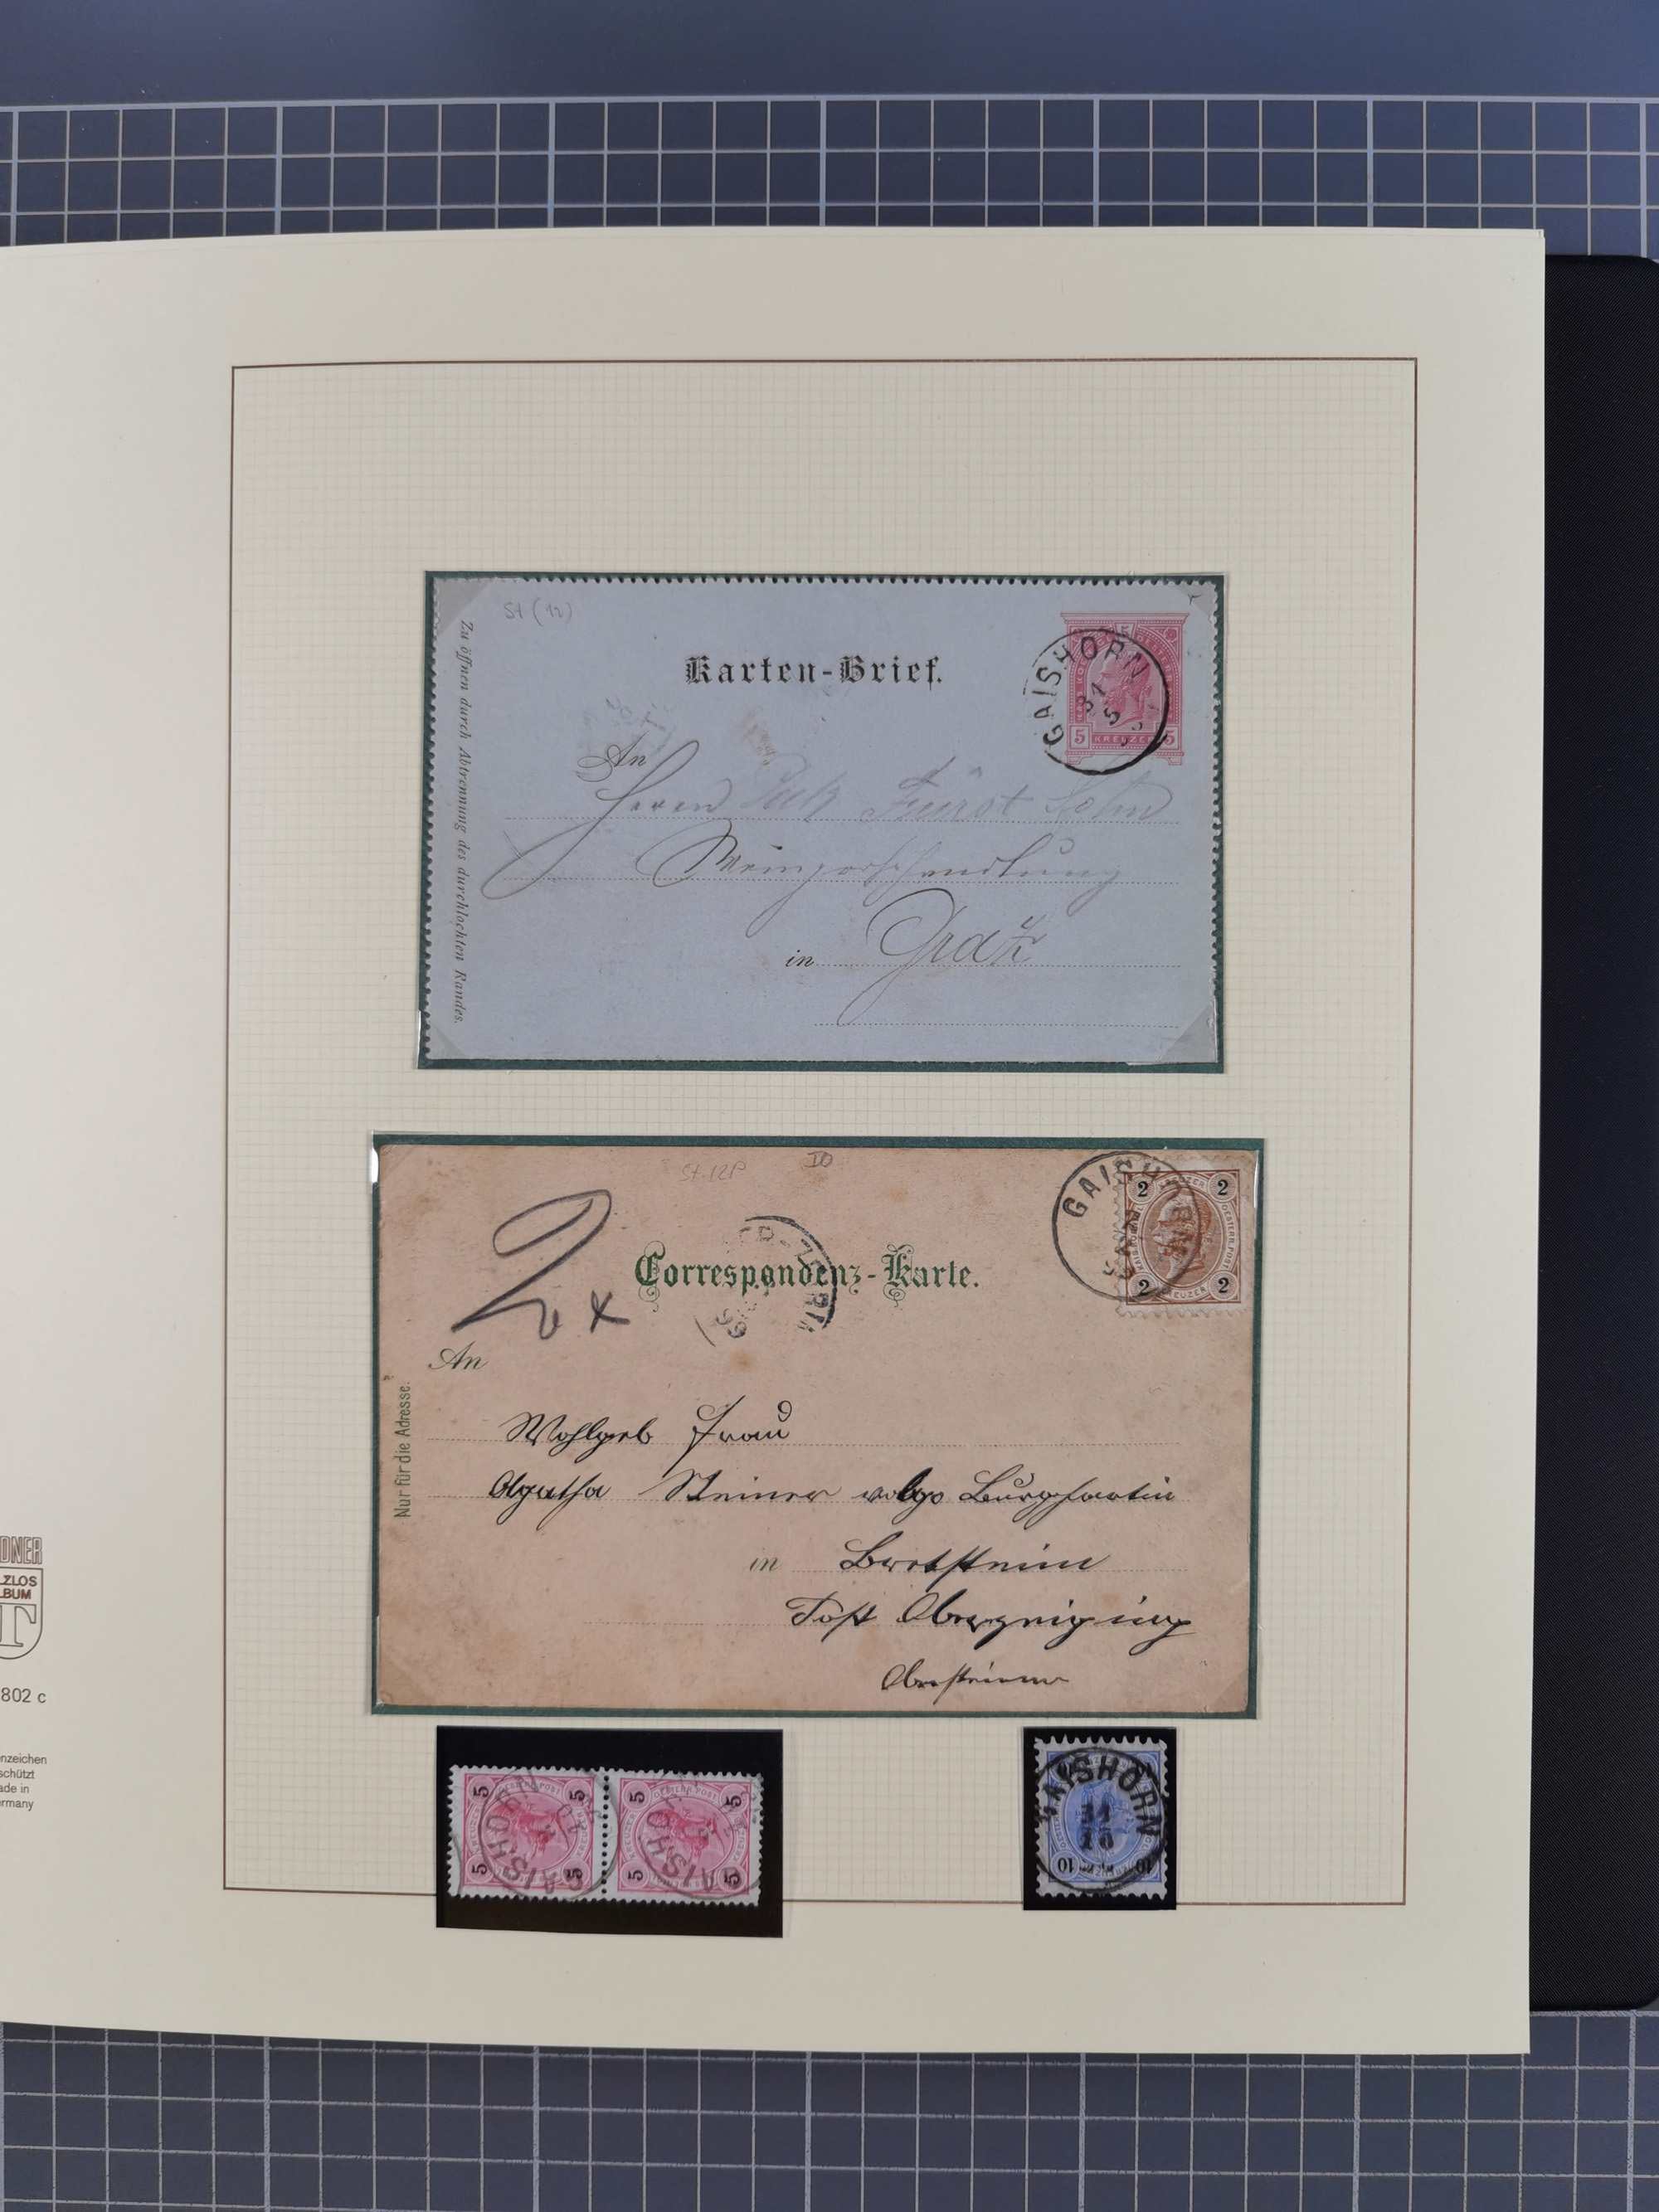 St (12)
Karten-Brief.
GAISHORN
31
5
5
5
5
KREUZER
Zu öffnen durch Abtrennung des durchlochten Randes.
An
Herrn Fürst Sohn
Weingroßhandlung
in Graz
St. 12P
2x
Correspondenz-Karte.
99
GAISH
2
2
2
2
KREUZER
OESTERR. POST
An
Nur für die Adresse.
Wohlgeb Frau
Agatha Steiner vulgo Burghartin
in
Post
Obersteier
DNER
ZLOS
LBUM
T
802 c
nzeichen
schützt
ade in
ermany
5
5
5
5
GAISHORN
5
5
5
5
AISHO
GAISHORN
11
10
10
10